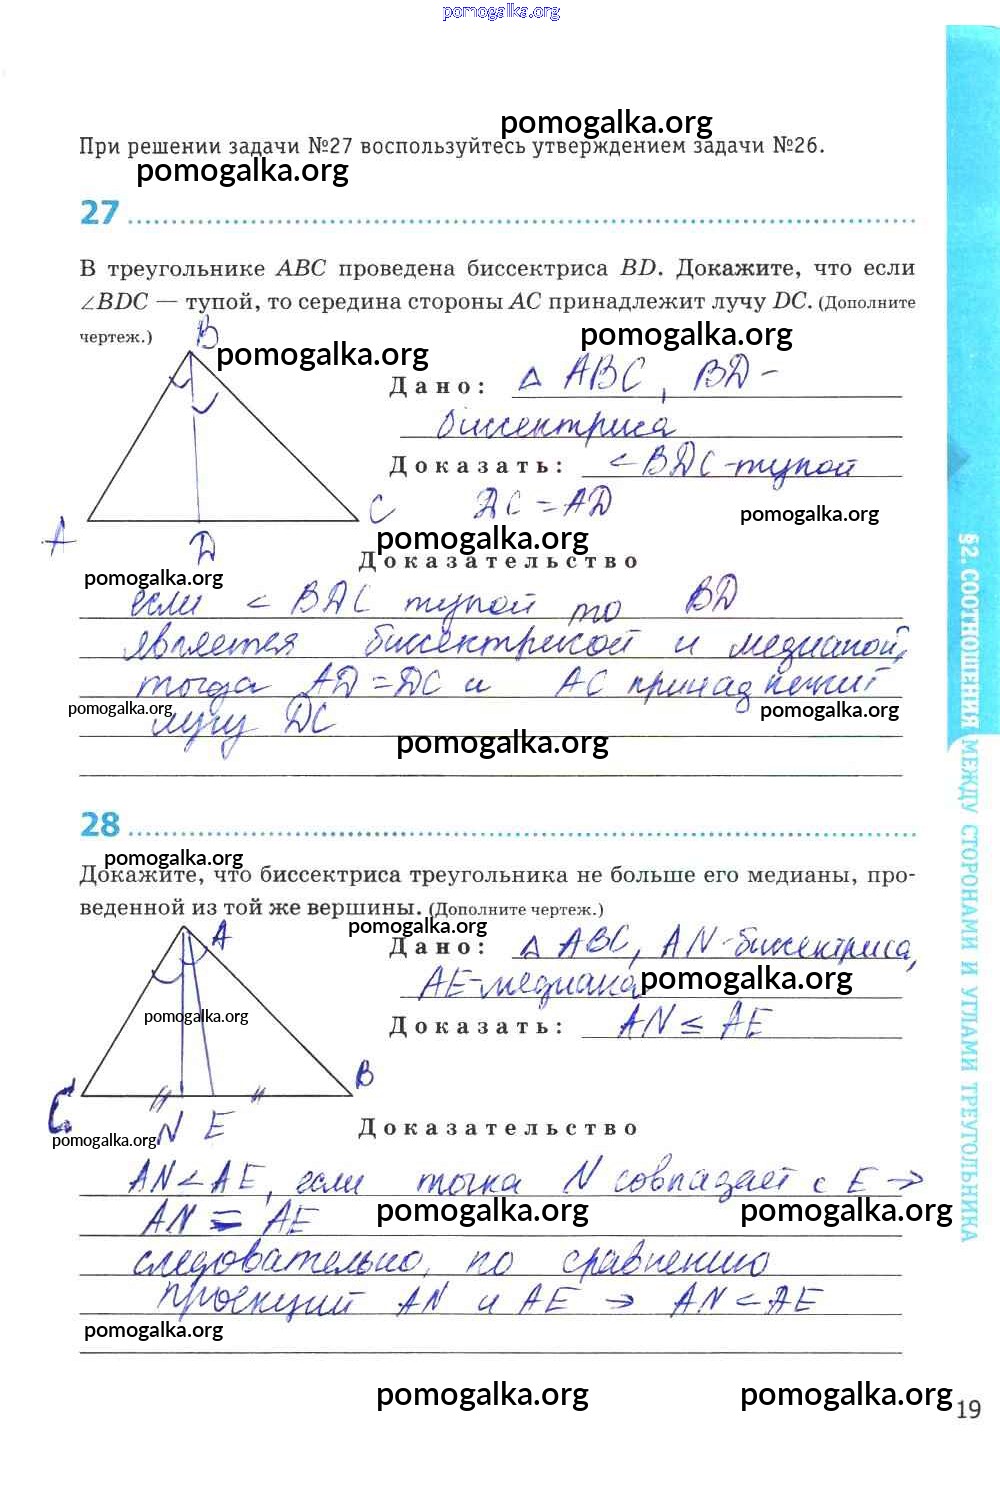 pomogalka.org
pomogalka.org
При решении задачи №27 воспользуйтесь утверждением задачи №26.
pomogalka.org
27
В треугольнике ABC проведена биссектриса BD. Докажите, что если
∠BDC — тупой, то середина стороны AC принадлежит лучу DC. (Дополните
чертеж.)
B
pomogalka.org
pomogalka.org
Дано: △ ABC, BD -
биссектриса
Доказать: < BDC - тупой
DC = AD
pomogalka.org
A
D
C
pomogalka.org
Доказательство
pomogalka.org
если < BDC тупой то BD
является биссектрисой и медианой,
тогда AD = DC и AC принадлежит
pomogalka.org
pomogalka.org
лучу DC
pomogalka.org
28
pomogalka.org
Докажите, что биссектриса треугольника не больше его медианы, про-
веденной из той же вершины. (Дополните чертеж.)
pomogalka.org
A
Дано: △ ABC, AN - биссектриса,
AE - медиана
pomogalka.org
pomogalka.org
Доказать: AN ≤ AE
C
B
N E
pomogalka.org
Доказательство
AN < AE, если точка N совпадает с E →
AN = AE
pomogalka.org
pomogalka.org
следовательно, по сравнению
проекций AN и AE → AN < AE
pomogalka.org
pomogalka.org
pomogalka.org
19
§2. СООТНОШЕНИЯ МЕЖДУ СТОРОНАМИ И УГЛАМИ ТРЕУГОЛЬНИКА